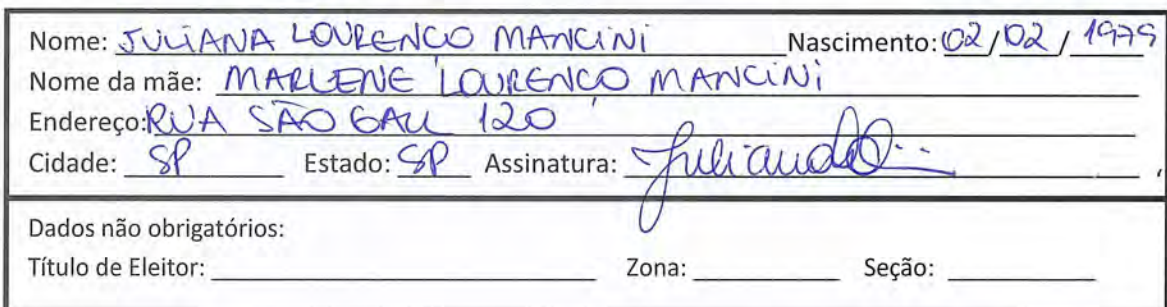 Nome: JULIANA LOURENÇO MANCINI Nascimento: 02/02/1979
Nome da mãe: MARLENE LOURENÇO MANCINI
Endereço: RUA SÃO GALL 120
Cidade: SP Estado: SP Assinatura:
Dados não obrigatórios:
Título de Eleitor: Zona: Seção: